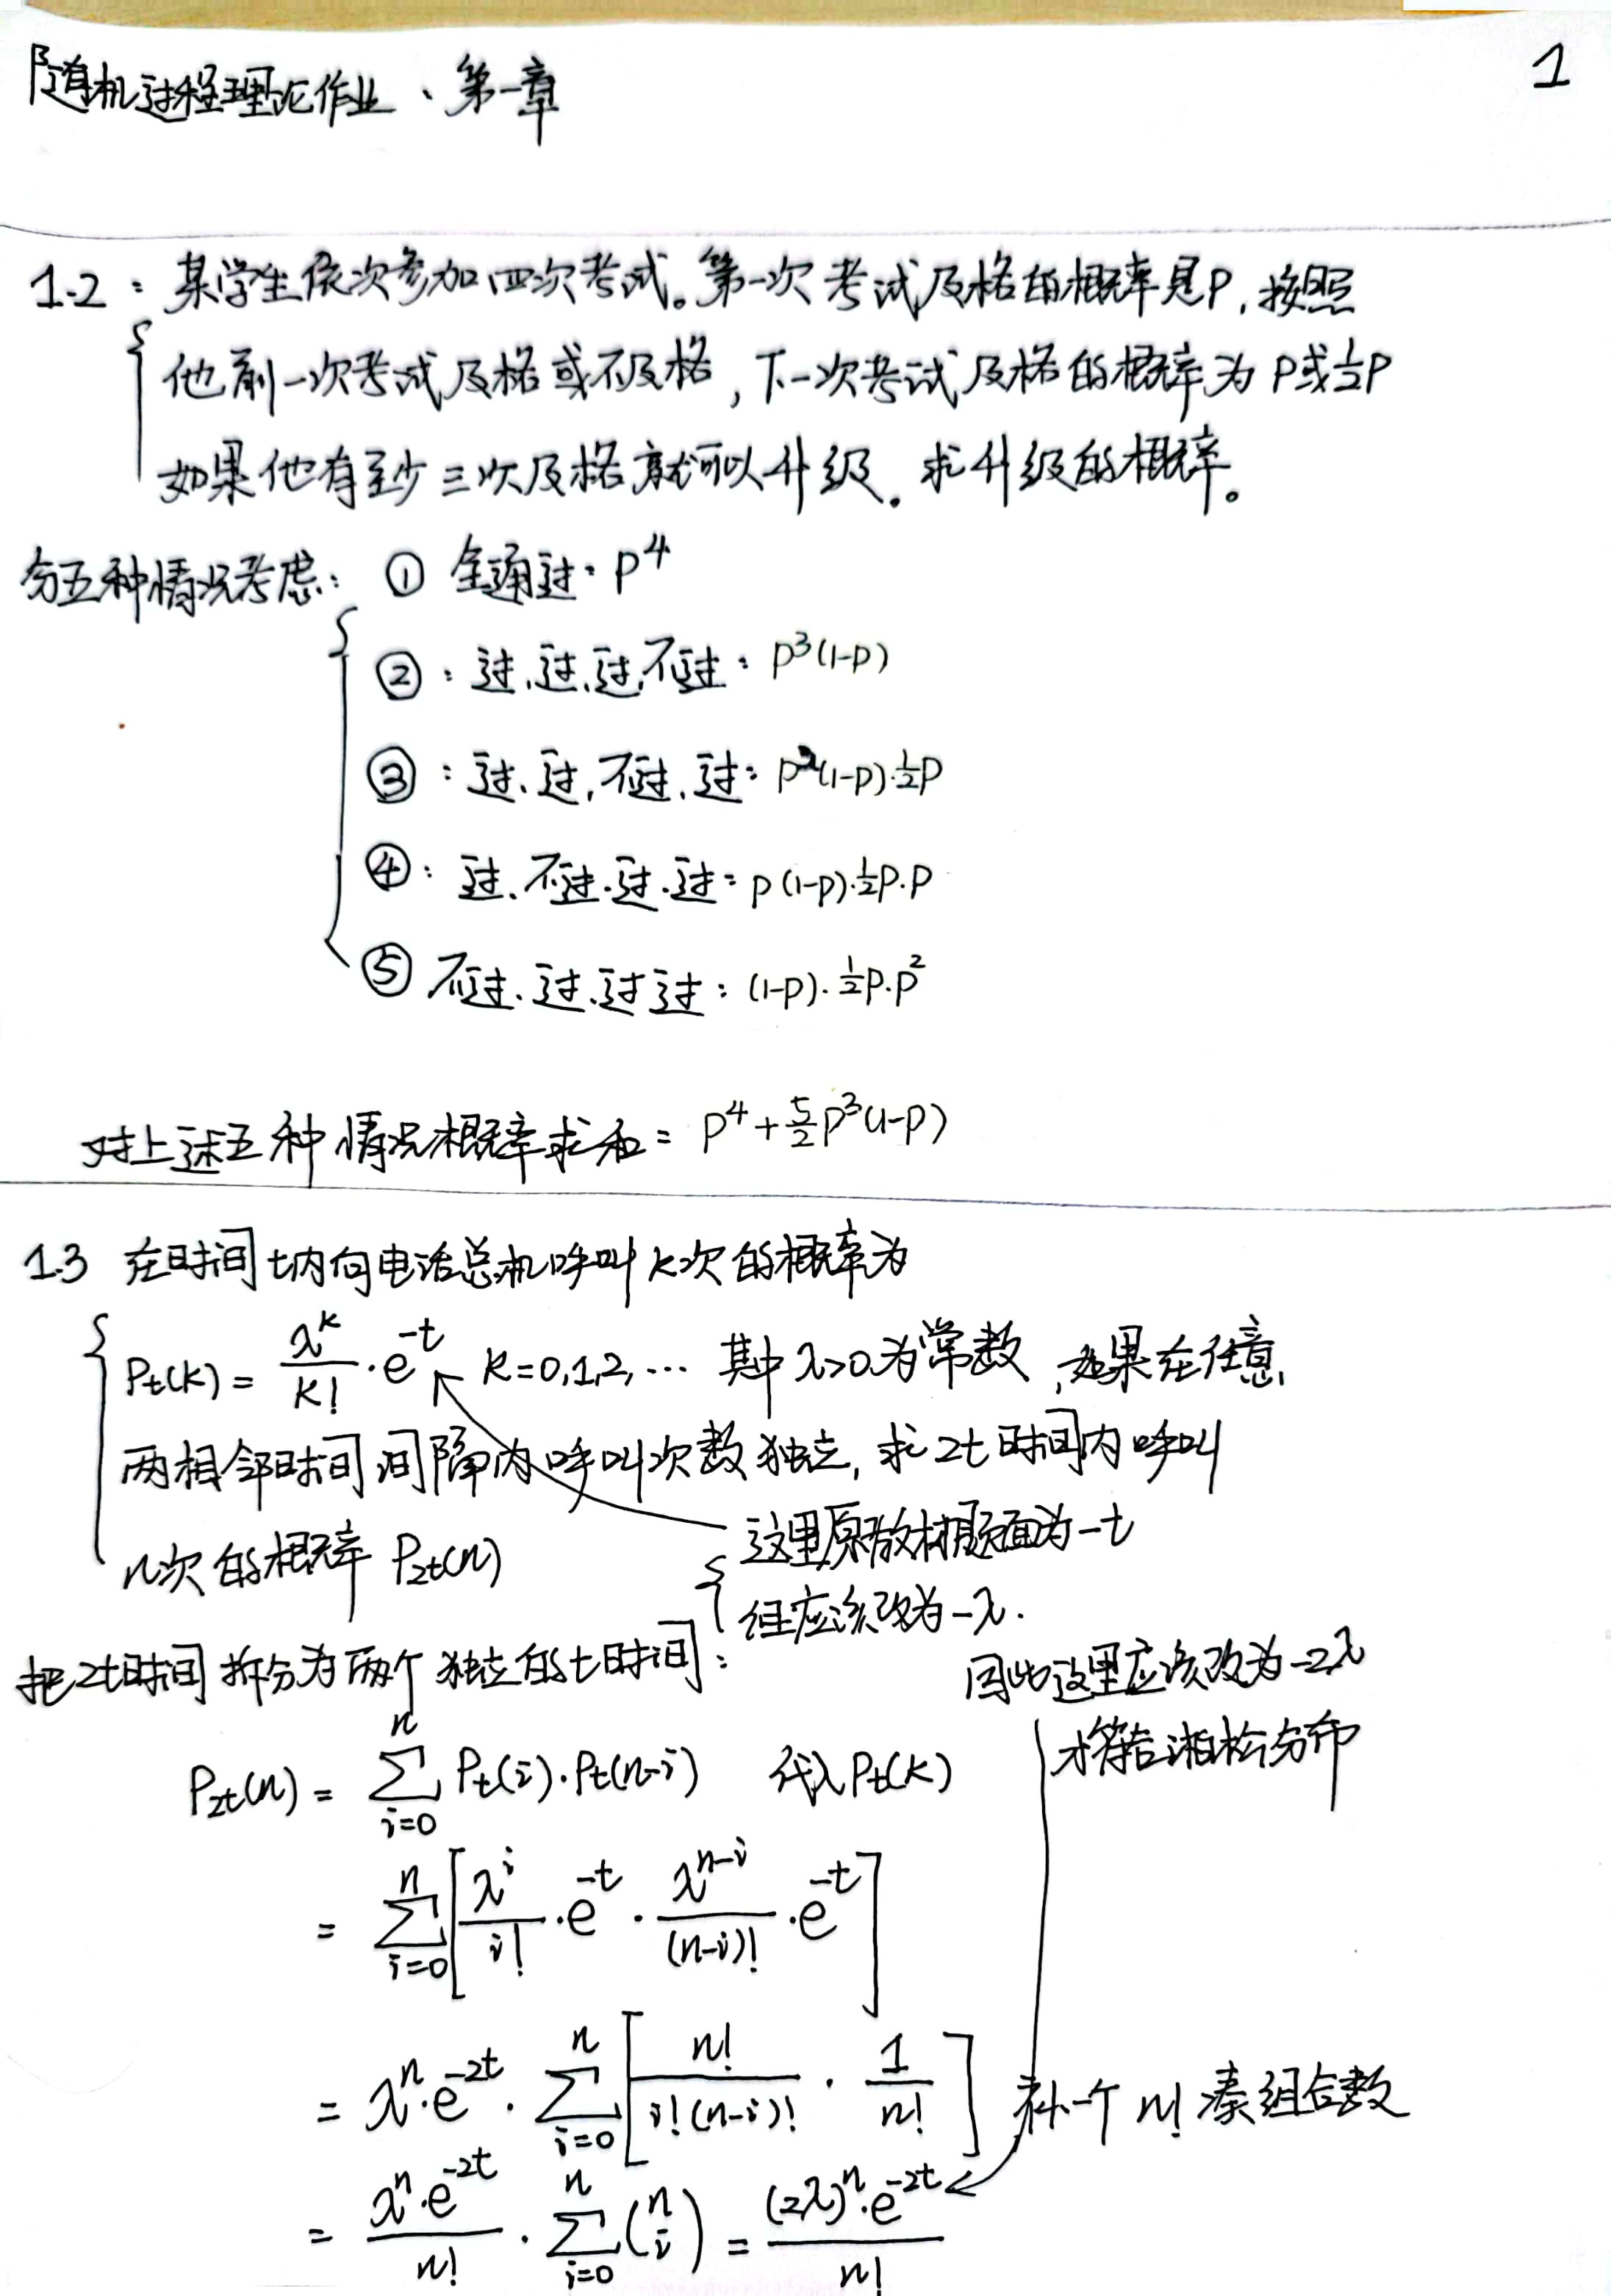 随机过程理论作业、第一章
1
1.2：某学生依次参加四次考试。第一次考试及格的概率是P,按照
他前一次考试及格或不及格,下一次考试及格的概率为P或½P
如果他有至少三次及格就可以升级.求升级的概率。
分五种情况考虑：① 全通过：P⁴
②：过、过、过、不过：P³(1-P)
③：过、过、不过、过：P²(1-P)·½P
④：过、不过、过、过：P(1-P)·½P·P
⑤ 不过、过、过 过：(1-P)·½P·P²
对上述五种情况概率求和= P⁴+5/2P³(1-P)
1.3 在时间t内向电话总机呼叫k次的概率为
Pt(k) = λ^k/k! · e^-t k=0,1,2,… 其中λ>0为常数,如果在任意
两相邻时间间隔内呼叫次数独立,求2t时间内呼叫
n次的概率 P2t(n)
这里原教材题面为-t
但应该改为-λ.
把2t时间拆分为两个独立的t时间：
因此这里应该改为-2λ
才符合泊松分布
P2t(n) = ∑_{i=0}^{n} Pt(i)·Pt(n-i) 代入Pt(k)
= ∑_{i=0}^{n} [λ^i/i! · e^-t · λ^(n-i)/(n-i)! · e^-t]
= λ^n·e^-2t · ∑_{i=0}^{n} [n!/i!(n-i)! · 1/n!] 补一个 n! 凑组合数
= λ^n·e^-2t/n! · ∑_{i=0}^{n} (n i) = (2λ)^n·e^-2t/n!